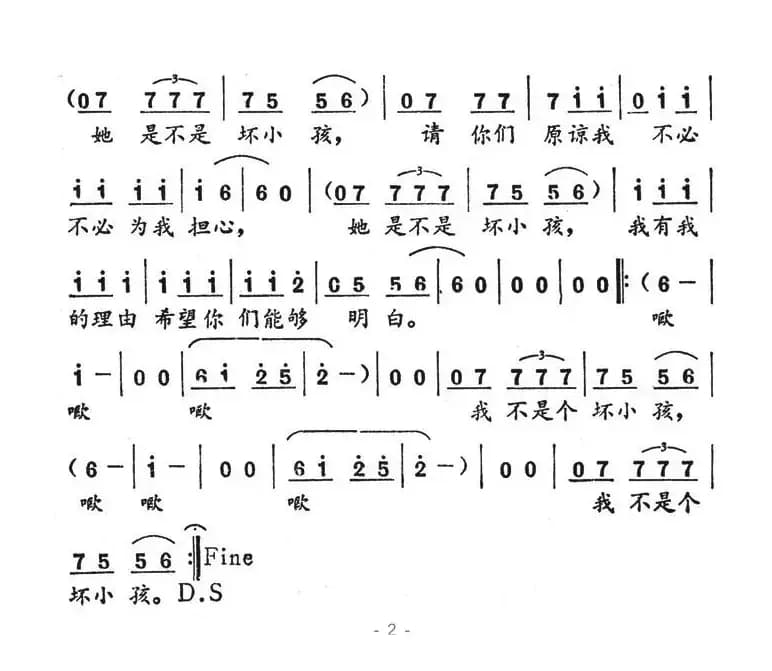 (07 777 | 75 56) | 07 77 | 7i̇i̇ | 0i̇i̇ |
她 是不是 坏小孩, 请 你们 原谅我 不必
i̇i̇ i̇i̇ | i̇6 | 60 | (07 777 | 75 56) | i̇i̇i̇ |
不必 为我 担心, 她 是不是 坏小孩, 我有我
i̇i̇i̇ | i̇i̇i̇ | i̇i̇2̇ | 05 56 | 60 | 00 | 00 ‖: (6 — |
的理由 希望你 们能够 明 白。 噢
i̇ — | 00 | 6i̇ 2̇5̇ | 2̇ —) | 00 | 07 777 | 75 56 |
噢 噢 我 不是个 坏小孩,
(6 — | i̇ — | 00 | 6i̇ 2̇5̇ | 2̇ —) | 00 | 07 777 |
噢 噢 噢 我 不是个
75 56 :‖ Fine
坏小 孩。 D.S
- 2 -